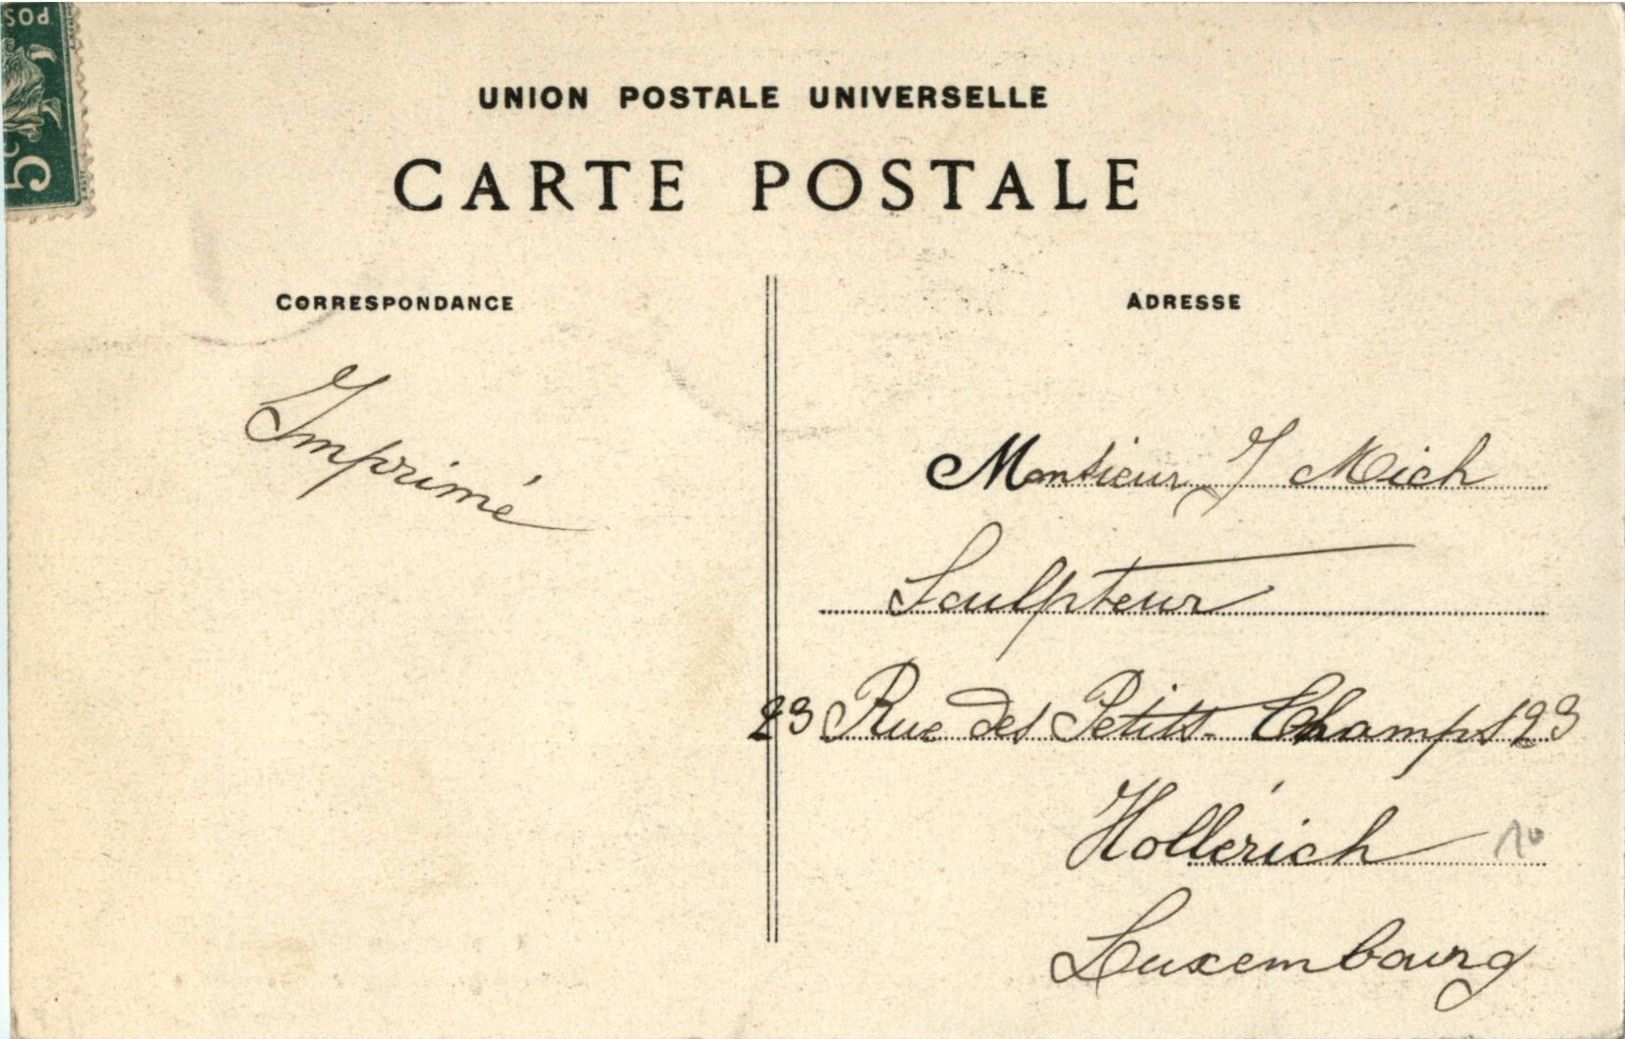 POS
5c
UNION POSTALE UNIVERSELLE
CARTE POSTALE
CORRESPONDANCE
ADRESSE
Imprimé
Monsieur J Mich
Sculpteur
23 Rue des Petits-Champs 23
Hollerich
10
Luxembourg